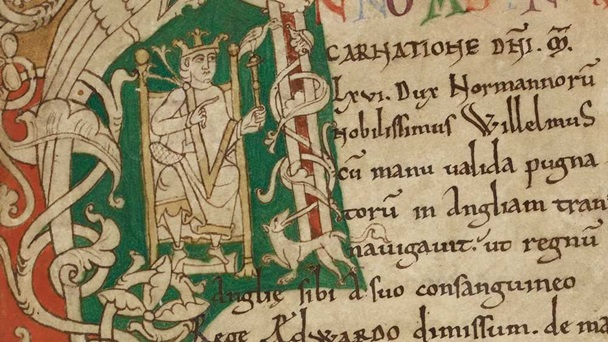 NNO AB IN
CARNATIONE DÑI. M̄.
Lxvi. Dux Normannorū
nobilissimus Willelmus
cū manu ualida pugna
torū in Angliam tran
nauigauit. ut regnū
Anglie sibi a suo consanguineo
Rege EdWARDO dimissum. de ma